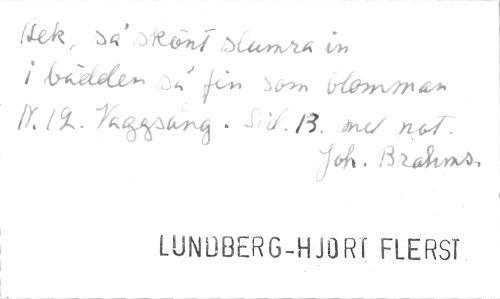 så skönt slumra in
i bädden så fin som blomman
N. 12. Vaggsång. Sid. 13. med not.
Joh. Brahms.
LUNDBERG-HJORT FLERST